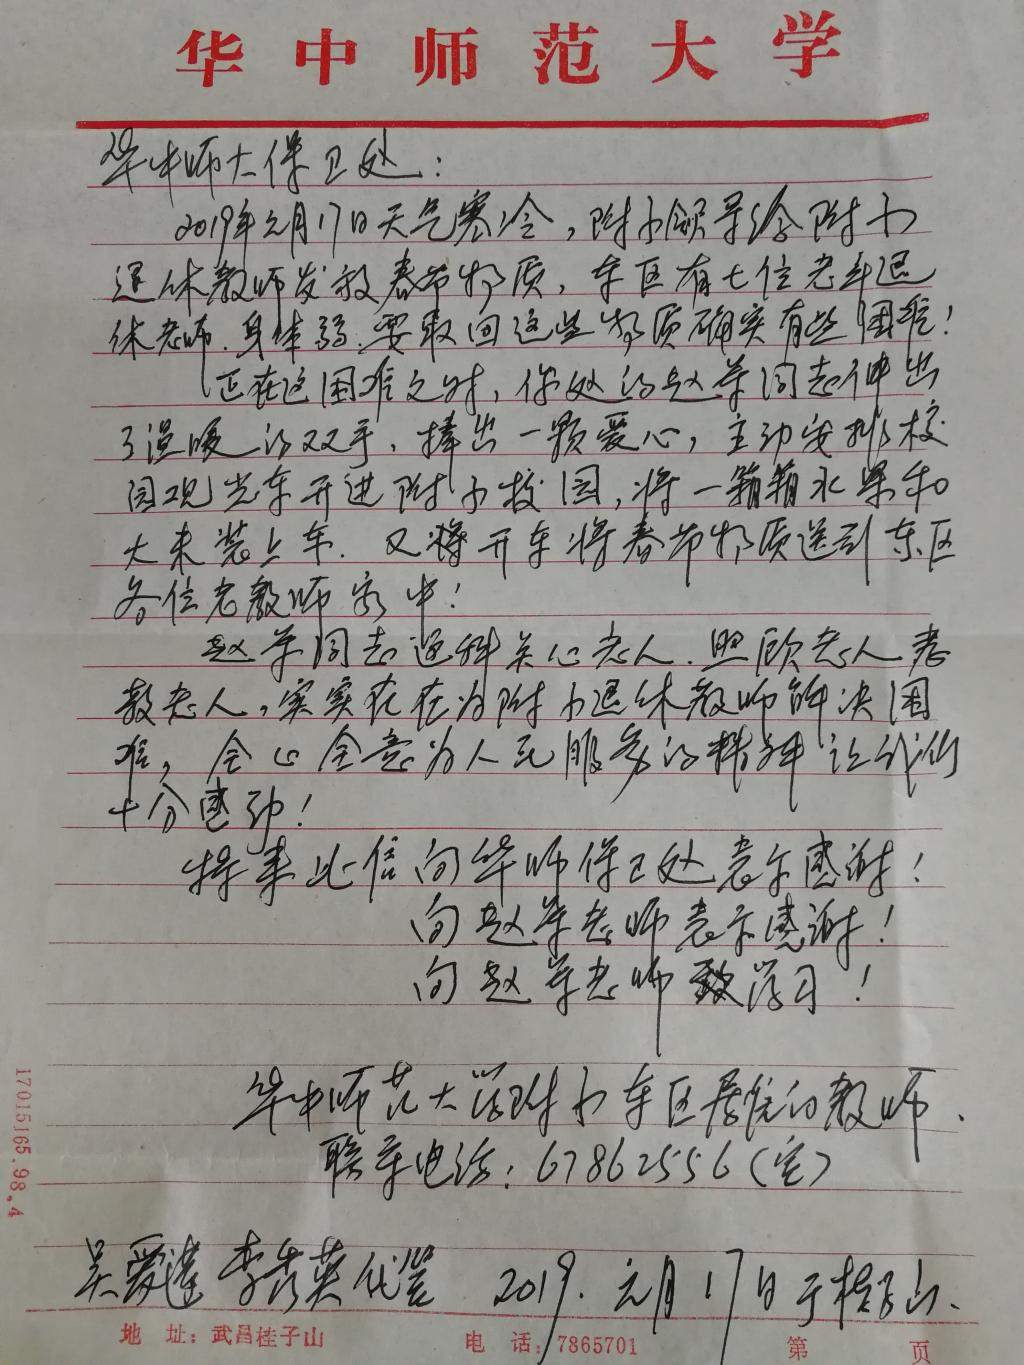 华中师范大学
华中师大保卫处:
2019年元月17日天气寒冷,附小领导给附小
退休教师发放春节物质,东区有七位老年退
休老师.身体弱.要取回这些物质确实有些困难!
正在这困难之时,你处的赵荣同志伸出
了温暖的双手,捧出一颗爱心,主动安排校
园观光车开进附小校园,将一箱箱水果和
大米装上车.又将开车将春节物质送到东区
各位老教师家中!
赵荣同志这种关心老人.照顾老人孝
敬老人,实实在在为附小退休教师解决困
难,全心全意为人民服务的精神让我们
十分感动!
特来此信向华师保卫处表示感谢!
向赵荣老师表示感谢!
向赵荣老师致学习!
华中师范大学附小东区居住的教师.
联系电话:67862556(宅)
吴爱莲 李秀英代笔 2019.元月17日于桂子山.
地 址:武昌桂子山 电 话:7865701 第 页
17015165.98.4